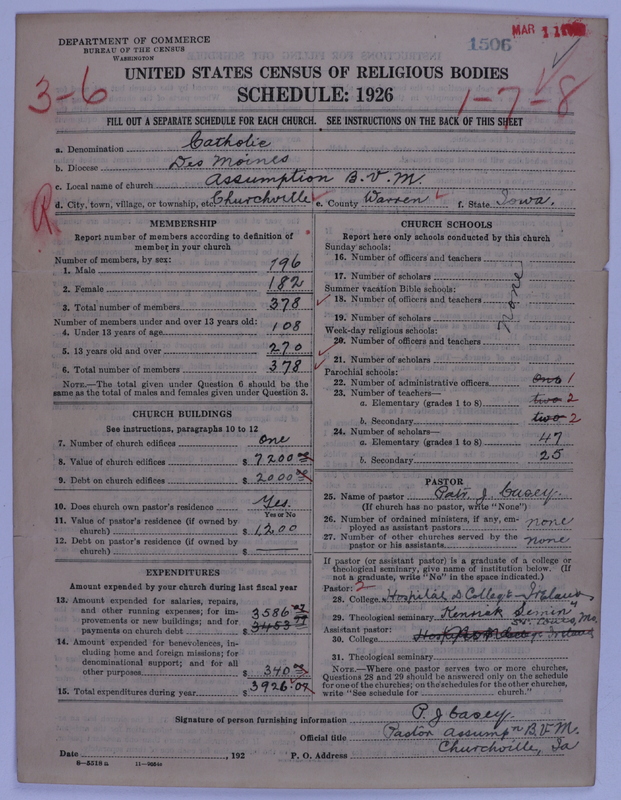 DEPARTMENT OF COMMERCE
BUREAU OF THE CENSUS
WASHINGTON
1506
MAR 11
UNITED STATES CENSUS OF RELIGIOUS BODIES
SCHEDULE: 1926
3-6
1-7-8
FILL OUT A SEPARATE SCHEDULE FOR EACH CHURCH. SEE INSTRUCTIONS ON THE BACK OF THIS SHEET
a. Denomination Catholic
b. Diocese Des Moines
c. Local name of church Assumption B.V.M.
d. City, town, village, or township, etc. Churchville e. County Warren f. State Iowa.
R
MEMBERSHIP
Report number of members according to definition of
member in your church
Number of members, by sex:
1. Male 196
2. Female 182
3. Total number of members 378
Number of members under and over 13 years old:
4. Under 13 years of age 108
5. 13 years old and over 270
6. Total number of members 378
NOTE.—The total given under Question 6 should be the
same as the total of males and females given under Question 3.
CHURCH BUILDINGS
See instructions, paragraphs 10 to 12
7. Number of church edifices one
8. Value of church edifices $7200
9. Debt on church edifices $2000
10. Does church own pastor's residence Yes.
Yes or No
11. Value of pastor's residence (if owned by
church) $1,200
12. Debt on pastor's residence (if owned by
church) $
EXPENDITURES
Amount expended by your church during last fiscal year
13. Amount expended for salaries, repairs,
and other running expenses; for im-
provements or new buildings; and for
payments on church debt $ 3586 3453
14. Amount expended for benevolences, in-
cluding home and foreign missions; for
denominational support; and for all
other purposes $ 340
15. Total expenditures during year $3926.07
CHURCH SCHOOLS
Report here only schools conducted by this church
Sunday schools:
16. Number of officers and teachers
17. Number of scholars
Summer vacation Bible schools:
18. Number of officers and teachers
none
19. Number of scholars
Week-day religious schools:
20. Number of officers and teachers
21. Number of scholars
Parochial schools:
22. Number of administrative officers one 1
23. Number of teachers—
a. Elementary (grades 1 to 8) two 2
b. Secondary two 2
24. Number of scholars—
a. Elementary (grades 1 to 8) 47
b. Secondary 25
PASTOR
25. Name of pastor Patr. J. Casey.
(If church has no pastor, write "None")
26. Number of ordained ministers, if any, em-
ployed as assistant pastors none
27. Number of other churches served by the
pastor or his assistants none
If pastor (or assistant pastor) is a graduate of a college or
theological seminary, give name of institution below. (If
not a graduate, write "No" in the space indicated.)
Pastor: 2
28. College Hospital College Ireland
29. Theological seminary Kenrick Semin"
St. Louis, Mo.
Assistant pastor:
30. College
31. Theological seminary
NOTE.—Where one pastor serves two or more churches,
Questions 28 and 29 should be answered only on the schedule
for one of the churches; on the schedules for the other churches,
write "See schedule for church."
Signature of person furnishing information P. J. Casey.
Official title Pastor Assumpn B.V.M.
Churchville, Ia
Date , 192 P. O. Address
8—5518 a 11—9684